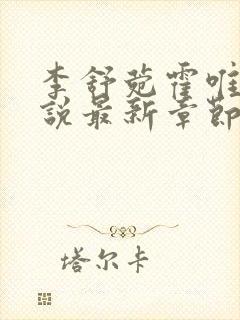 李舒菀霍唯
說最新章節
塔尔卡